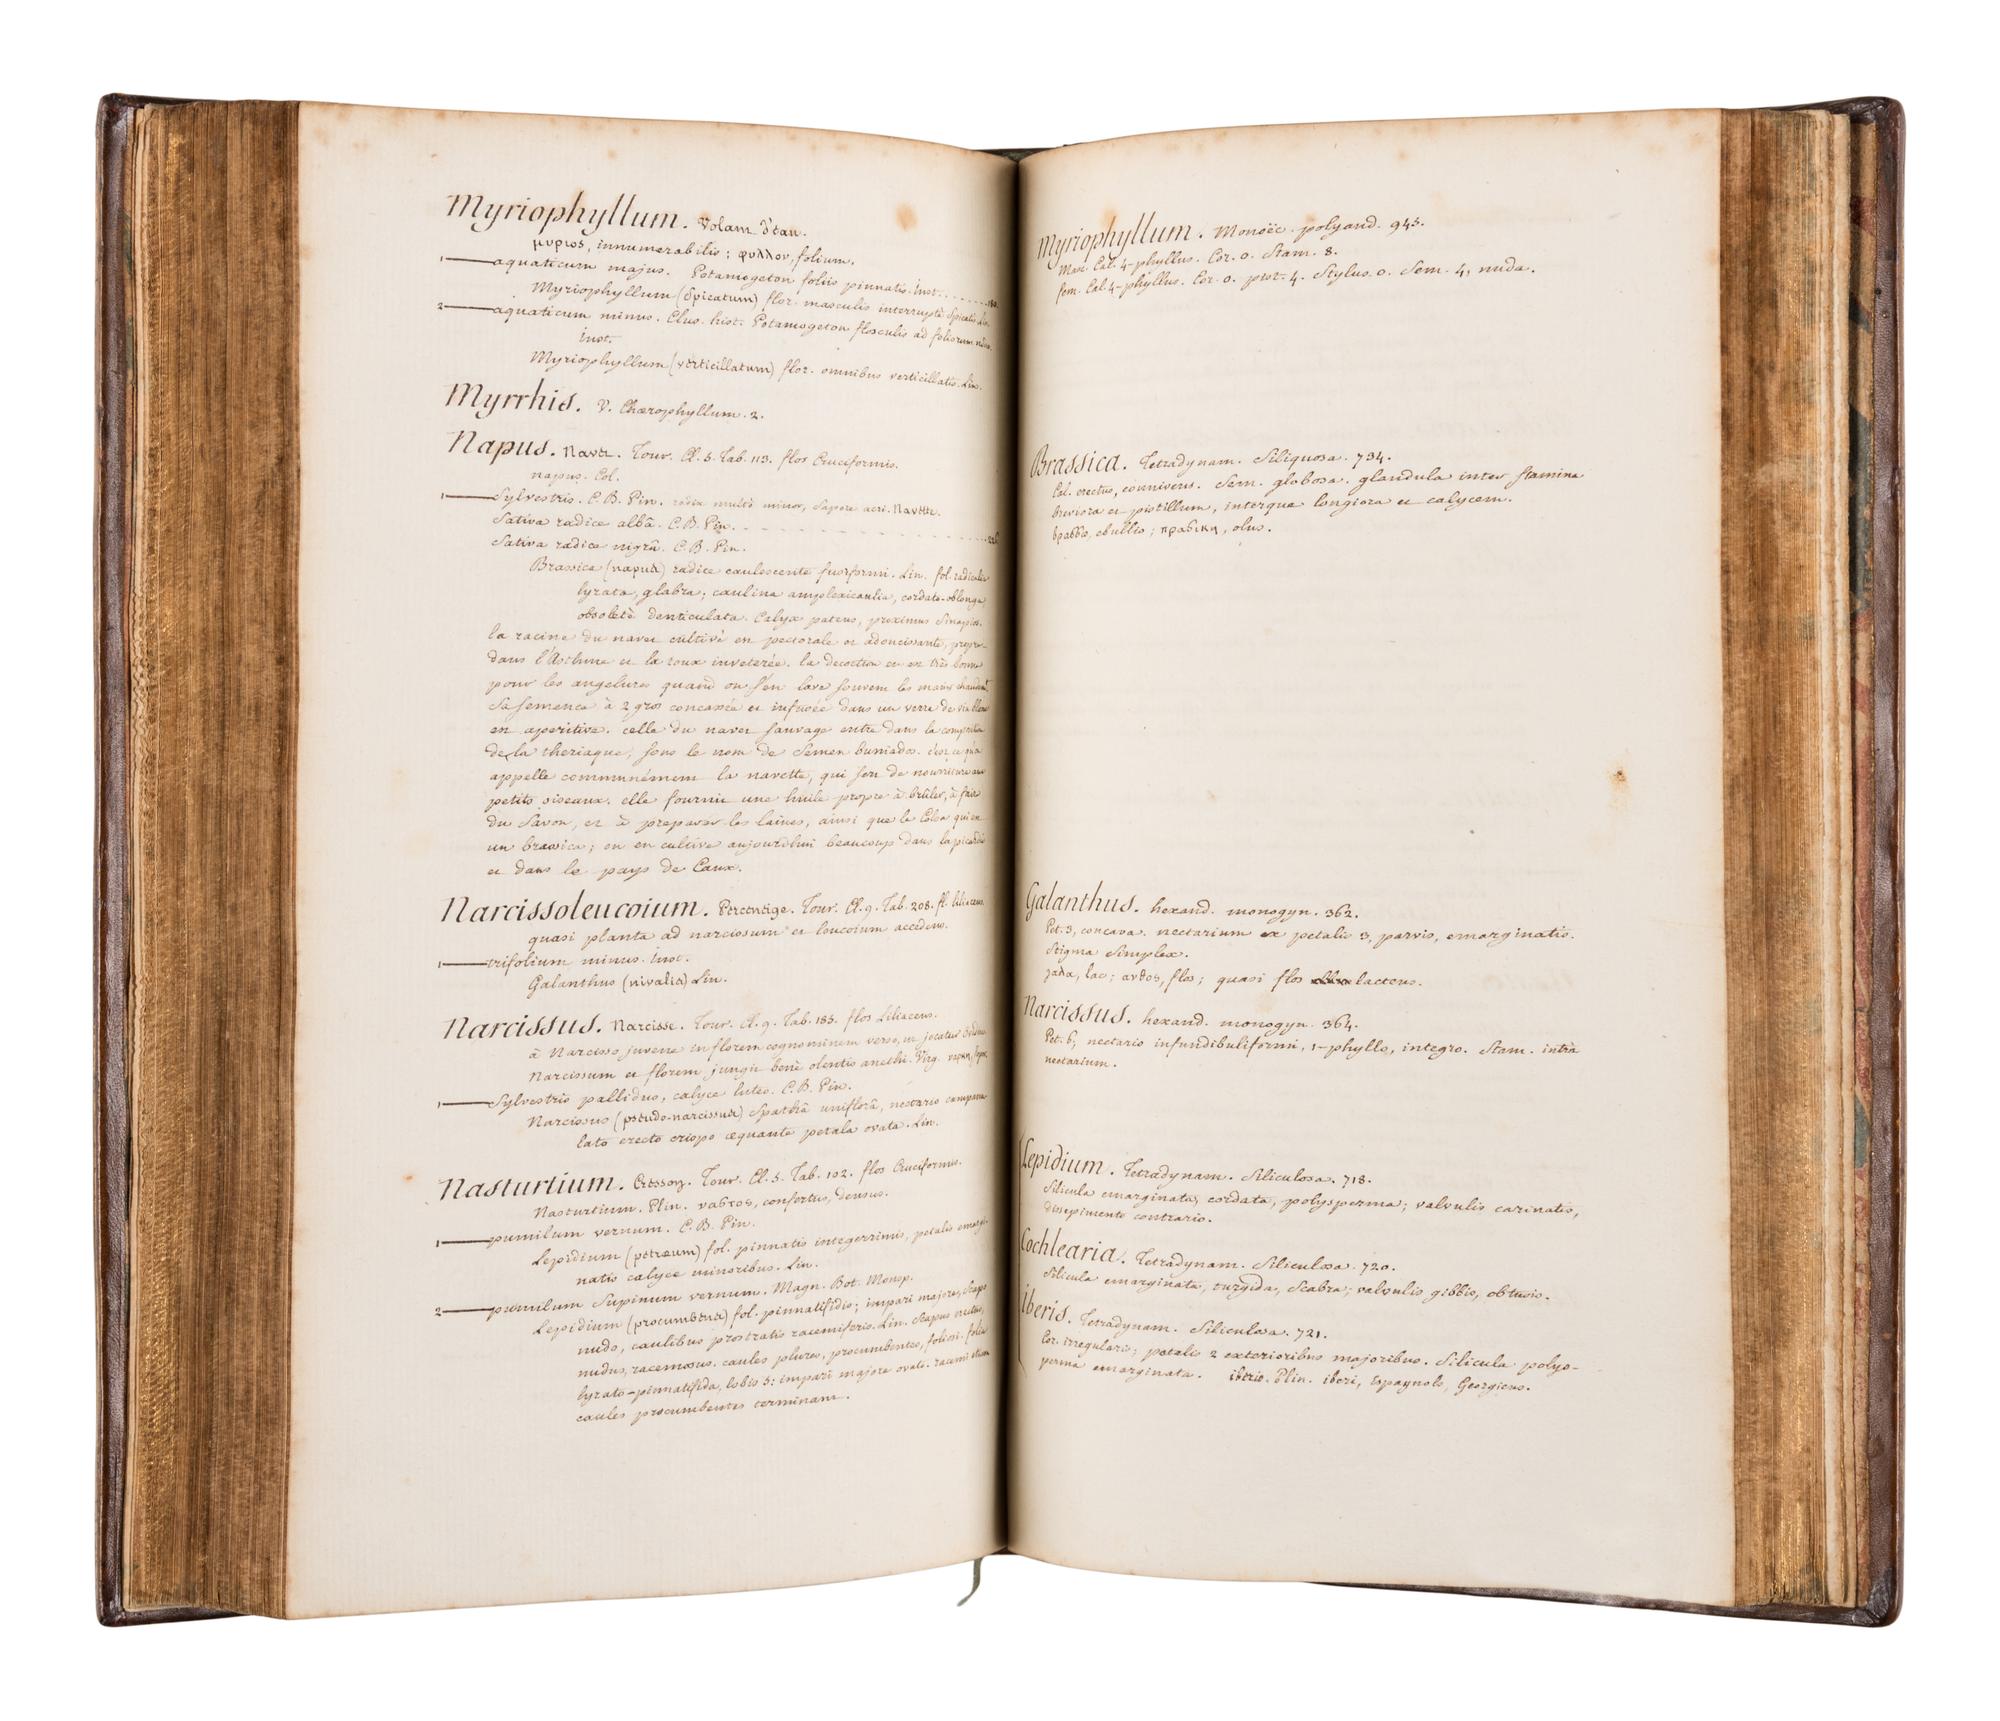 Myriophyllum. Volam d'tau.
μυριος, innumerabilis; φυλλον, folium.
1 aquaticum majus. Potamogeton foliis pinnatis. inst.
Myriophyllum (spicatum) flor. masculis interruptè spicatis. Lin.
2 aquaticum minus. Clus. hist. Potamogeton flosculis ad foliorum
inst.
Myriophyllum (verticillatum) flor. omnibus verticillatis. Lin.
Myrrhis. V. Chærophyllum. 2.
Napus. Navet. Tour. Cl. 5. Tab. 113. flos Cruciformis.
napus. Col.
1 Sylvestris. C. B. Pin. radix multò minor, sapore acri. Navette.
Sativa radice albâ. C. B. Pin.
Sativa radice nigrâ. C. B. Pin.
Brassica (napus) radice caulescente fusiformi. Lin. fol. radicalia
lyrata, glabra; caulina amplexicaulia, cordato-oblonga,
obsoletè denticulata. Calyx patens, proximus Sinapios.
la racine du navet cultivé est pectorale et adoucissante, propre
dans l'Asthme et la toux inveterée. la decoction en est très bonne
pour les angelures quand on s'en lave souvent les mains chaudemt.
Sa semence à 2 gros concassée et infusée dans un verre de vin blanc
est aperitive. celle du navet sauvage entre dans la composition
de la theriaque, sous le nom de Semen buniados. c'est ce qu'on
appelle communément la navette, qui sert de nourriture aux
petits oiseaux. elle fournit une huile propre à brûler, à faire
du Savon, et à preparer les laines, ainsi que le Colsa qui est
un brassica; on en cultive aujourdhui beaucoup dans la picardie
et dans le pays de Caux.
Narcissoleucoium. Perceneige. Tour. Cl. 9. Tab. 208. fl. liliaceus.
quasi planta ad narcissum et leucoium accedens.
1 trifolium minus. inst.
Galanthus (nivalis) Lin.
Narcissus. Narcisse. Tour. Cl. 9. Tab. 185. flos Liliaceus.
à Narcisso juvene in florem cognominem verso, ut jocatur Ovidius.
Narcissum et florem jungit benè olentis anethi. Virg. ναρκη,
1 Sylvestris pallidus, calyce luteo. C. B. Pin.
Narcissus (pseudo-narcissus) Spathâ uniflorâ, nectario campanu
lato erecto crispo æquante petala ovata. Lin.
Nasturtium. Cresson. Tour. Cl. 5. Tab. 102. flos Cruciformis.
Nasturtium. Plin. ναςτος, confertus, densus.
1 pumilum vernum. C. B. Pin.
Lepidium (petræum) fol. pinnatis integerrimis, petalis emargi-
natis calyce minoribus. Lin.
2 pumilum Supinum vernum. Magn. Bot. Monsp.
Lepidium (procumbens) fol. pinnatifidis; impari majore, scapo
nudo, caulibus prostratis racemiferis. Lin. Scapus erectus,
nudus, racemosus. caules plures, procumbentes, foliosi. folia
lyrato-pinnatifida, lobis 5: impari majore ovali. racemi etiam
caules procumbentes terminant.
Myriophyllum. Monoëc. polyand. 945.
Mas. Cal. 4-phyllus. Cor. 0. Stam. 8.
fem. Cal. 4-phyllus. Cor. 0. pist. 4. Stylus. 0. Sem. 4, nuda.
Brassica. Tetradynam. Siliquosa. 734.
Cal. erectus, connivens. Sem. globosa. glandula inter stamina
breviora et pistillum, interque longiora et calycem.
βραςςω, ebullio; πραςικη, olus.
Galanthus. hexand. monogyn. 362.
Pet. 3, concava. nectarium ex petalis 3, parvis, emarginatis.
Stigma simplex.
γαλα, lac; ανθος, flos; quasi flos lacteus.
Narcissus. hexand. monogyn. 364.
Pet. 6; nectario infundibuliformi, 1-phyllo, integro. Stam. intrà
nectarium.
Lepidium. Tetradynam. Siliculosa. 718.
Silicula emarginata, cordata, polysperma; valvulis carinatis,
dissepimento contrario.
Cochlearia. Tetradynam. Siliculosa. 720.
Silicula emarginata, turgida, scabra; valvulis gibbis, obtusis.
Iberis. Tetradynam. Siliculosa. 721.
Cor. irregularis; petalis 2 exterioribus majoribus. Silicula polys-
perma emarginata. iberis. Plin. iberi, Espagnols, Georgiens.